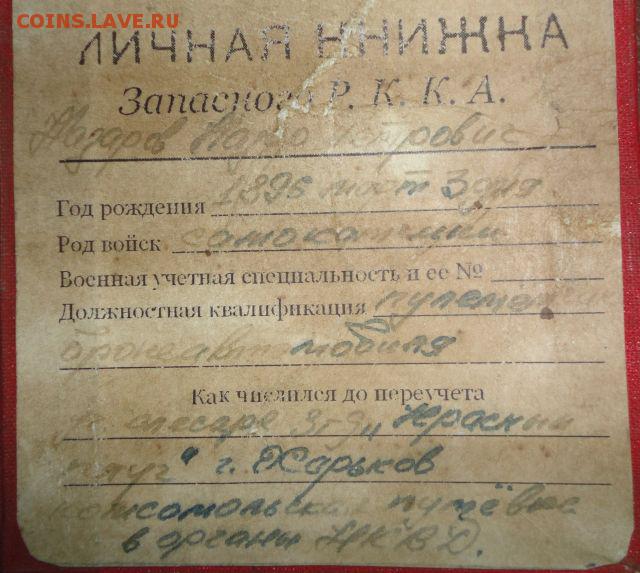 COINS.LAVE.RU
ЛИЧНАЯ КНИЖКА
Запасного Р. К. К. А.
Назаров
Год рождения 1895 март 3 дня
Род войск самокатчики
Военная учетная специальность и ее №
Должностная квалификация
мобиля
Как числился до переучета
слесаря "Красный
плуг" г. Харьков
комсомольская путёвка
в органы НКВД.